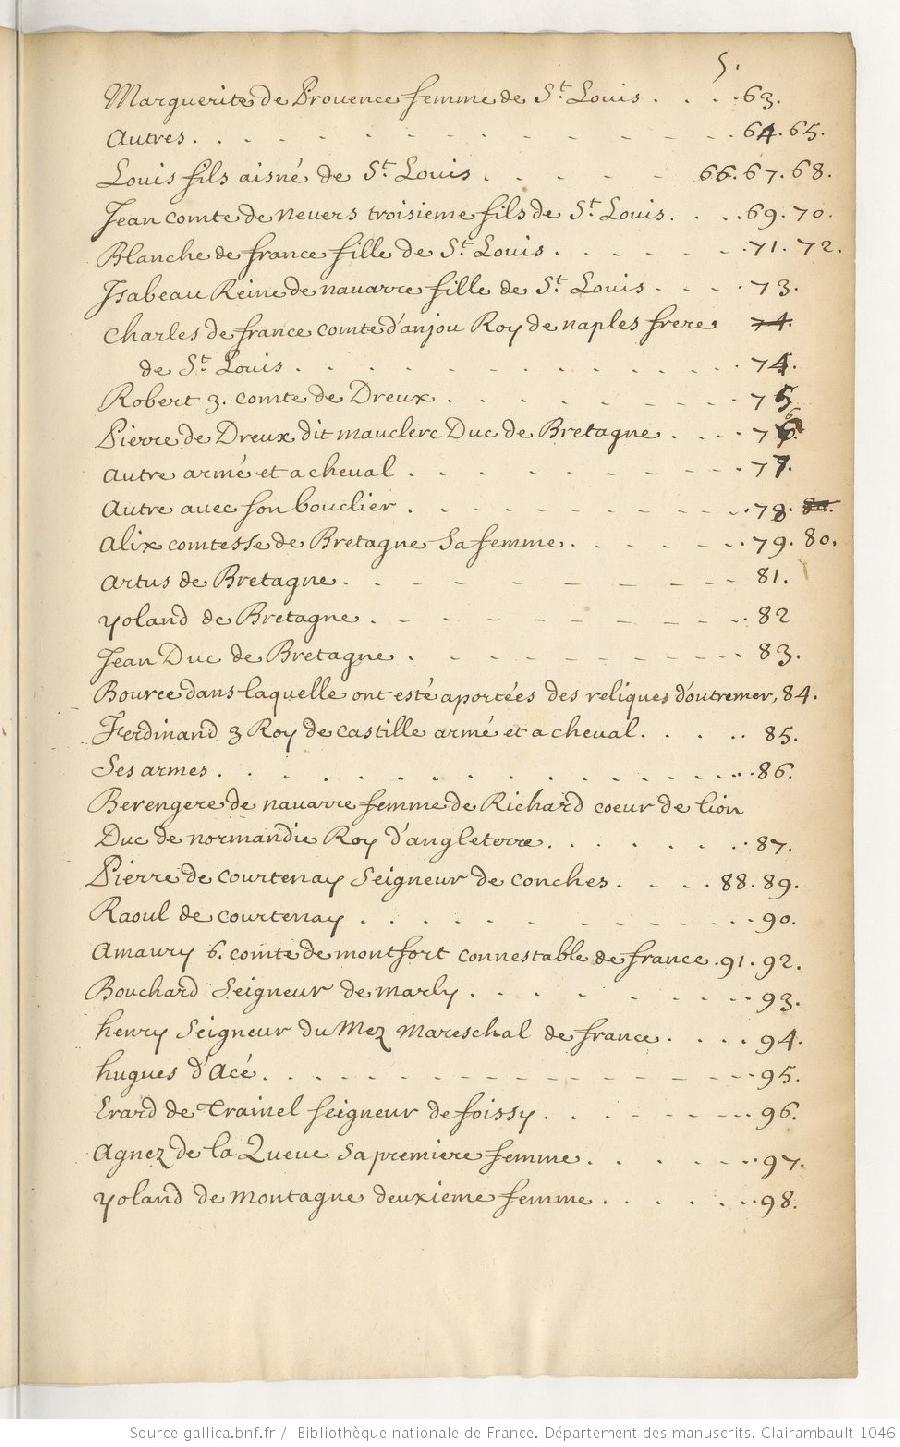 5.
Marguerite de Provence femme de St. Louis . . . . 63.
Autres . . . . . . . . . . . . . 64. 65.
Louis fils aisné de St. Louis . . . . . 66. 67. 68.
Jean comte de nevers troisieme fils de St. Louis . . . 69. 70.
Blanche de france fille de St. Louis . . . . . . 71. 72.
Isabeau Reine de navarre fille de St. Louis . . . . 73.
Charles de france comte d'anjou Roy de naples frere. 74.
de St. Louis . . . . . . . . . . . . 74.
Robert 3. comte de Dreux . . . . . . . . . 75
Pierre de Dreux dit mauclerc Duc de Bretagne . . . . 76
autre armé et a cheval . . . . . . . . . . 77.
Autre avec son bouclier . . . . . . . . . . 78. 80.
Alix comtesse de Bretagne sa femme . . . . . . 79. 80.
Artus de Bretagne . . . . . . . . . . . 81.
yoland de Bretagne . . . . . . . . . . . 82
Jean Duc de Bretagne . . . . . . . . . . 83.
Bource dans laquelle ont esté aportées des reliques d'outremer, 84.
Ferdinand 3 Roy de castille armé et a cheval . . . . . 85.
Ses armes . . . . . . . . . . . . . . 86.
Berengere de navarre femme de Richard coeur de lion
Duc de normandie Roy d'angleterre . . . . . . . 87.
Pierre de courtenay Seigneur de conches . . . . 88. 89.
Raoul de courtenay . . . . . . . . . . . 90.
Amaury 6. comte de montfort connestable de france . 91. 92.
Bouchard Seigneur de marly . . . . . . . . 93.
henry Seigneur du Mez Mareschal de france . . . . 94.
hugues d'Acé . . . . . . . . . . . . . 95.
Erard de Trainel seigneur de foissy . . . . . . 96.
Agnez de la Queue sa premiere femme . . . . . 97.
yoland de montagne deuxieme femme . . . . . . 98.
Source gallica.bnf.fr / Bibliothèque nationale de France. Département des manuscrits. Clairambault 1046